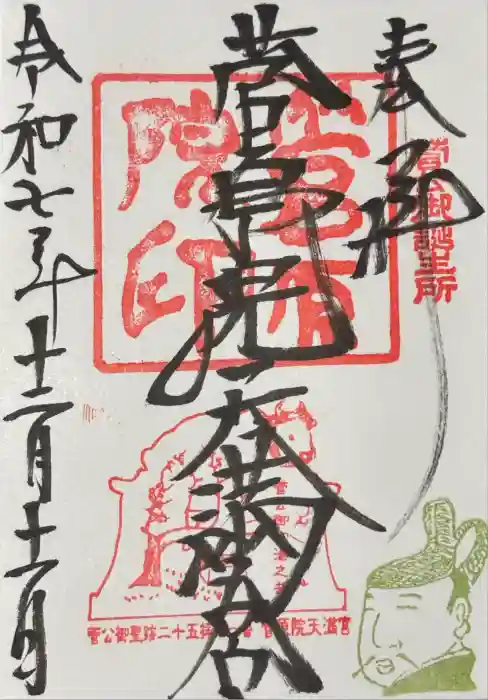 奉拝
菅公御誕生所
菅原院天満宮
菅原院印
菅公御聖蹟二十五拝 一番 菅原院天満宮
令和七年十二月十一日